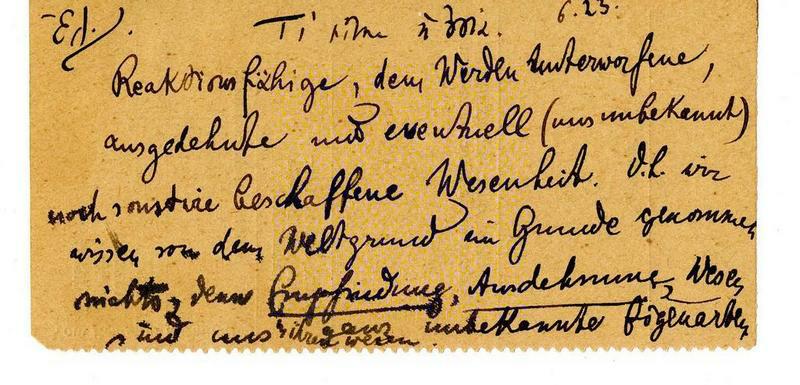 6.23.
Reaktionsfähige, dem Werden Unterworfene,
ausgedehnte und eventuell (uns unbekannt)
noch sonstwie beschaffene Wesenheit. D.h. wir
wissen von dem Weltgrund im Grunde genommen
nichts, denn Empfindung, Ausdehnung, Wesen
sind uns ganz unbekannte
wesen.